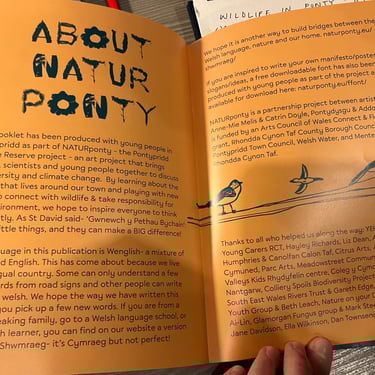 WILDLIFE IN PONTY
ABOUT
NATUR
PONTY
ooklet has been produced with young people in
pridd as part of NATURponty - the Pontypridd
e Reserve project - an art project that brings
, scientists and young people together to discuss
ersity and climate change. By learning about the
that lives around our town and playing with new
o connect with wildlife & take responsibility for
vironment, we hope to inspire everyone to think
tly. As St David said- 'Gwnewch y Pethau Bychain'
little things, and they can make a BIG difference!
uage in this publication is Wenglish- a mixture of
d English. This has come about because we live
gual country. Some can only understand a few
ords from road signs and other people can write
welsh. We hope the way we have written this
you pick up a few new words. If you are from a
eaking family, go to a Welsh language school, or
h learner, you can find on our website a version
Shwmraeg- it's Cymraeg but not perfect!
We hope it is another way to build bridges between the
Welsh language, nature and our home. naturponty.eu/
shwmraeg/
If you are inspired to write your own manifesto/poster
slogans/ideas, a free downloadable font has also been
produced with young people as part of the project a
available for download here: naturponty.eu/ffont/
NATURponty is a partnership project between artist
Anne-Mie Melis & Catrin Doyle, Pontydysgu & Addo
is funded by an Arts Council of Wales Connect & Fl
grant. Rhondda Cynon Taf County Borough Council
Pontypridd Town Council, Welsh Water, and Mente
Rhondda Cynon Taf.
Thanks to all who helped us along the way: YE
Young Carers RCT, Hayley Richards, Liz Dean, A
Humphries & Canolfan Calon Taf, Citrus Arts,
Cymuned, Parc Arts, Meadowstreet Commun
Valleys Kids Rhydyfelin centre, Coleg y Cymo
Nantgarw, Colliery Spoils Biodiversity Project
South East Wales Rivers Trust & Gareth Edge,
Youth Group & Beth Leach, Nature on your D
Ai-Lin, Glamorgan Fungus group & Mark Stee
Jane Davidson, Ella Wilkinson, Dan Townsend